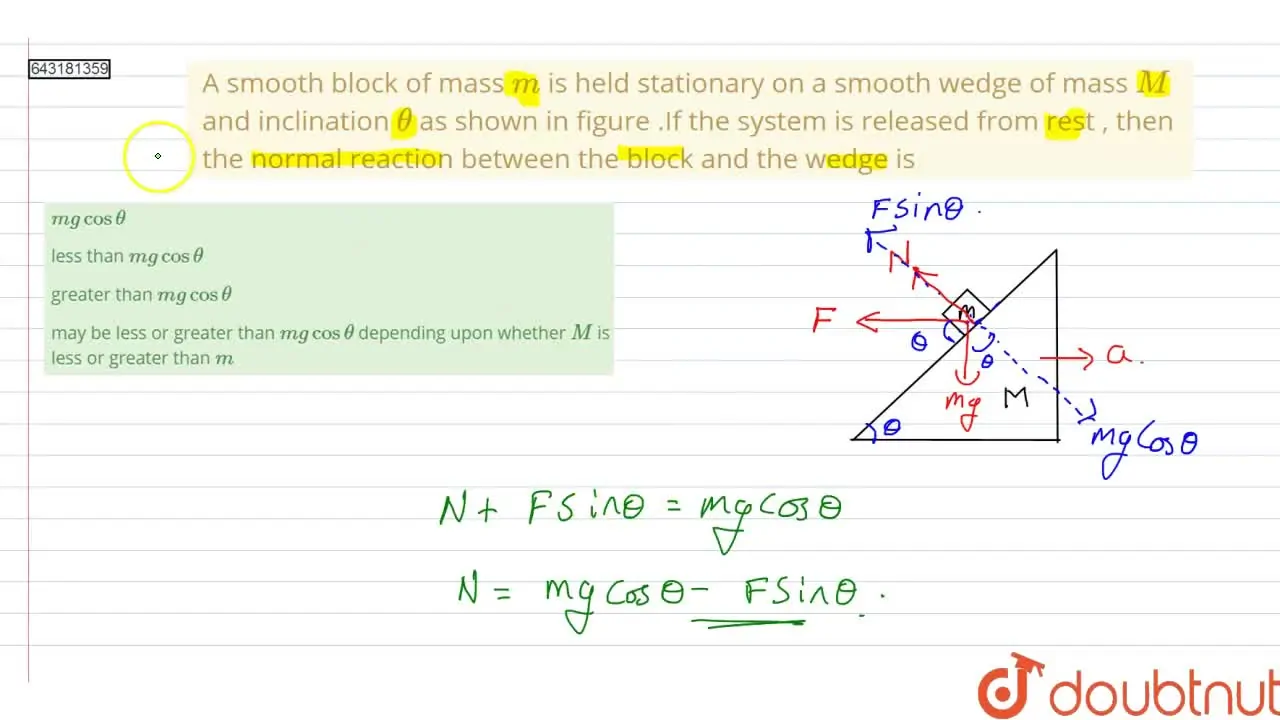 643181359
A smooth block of mass m is held stationary on a smooth wedge of mass M
and inclination θ as shown in figure .If the system is released from rest , then
the normal reaction between the block and the wedge is
mg cos θ
less than mg cos θ
greater than mg cos θ
may be less or greater than mg cos θ depending upon whether M is
less or greater than m
F sinθ
N
m
F
θ
θ
a
mg
M
θ
mg Cosθ
N + F sinθ = mg cosθ
N = mg cosθ - F sinθ
doubtnut